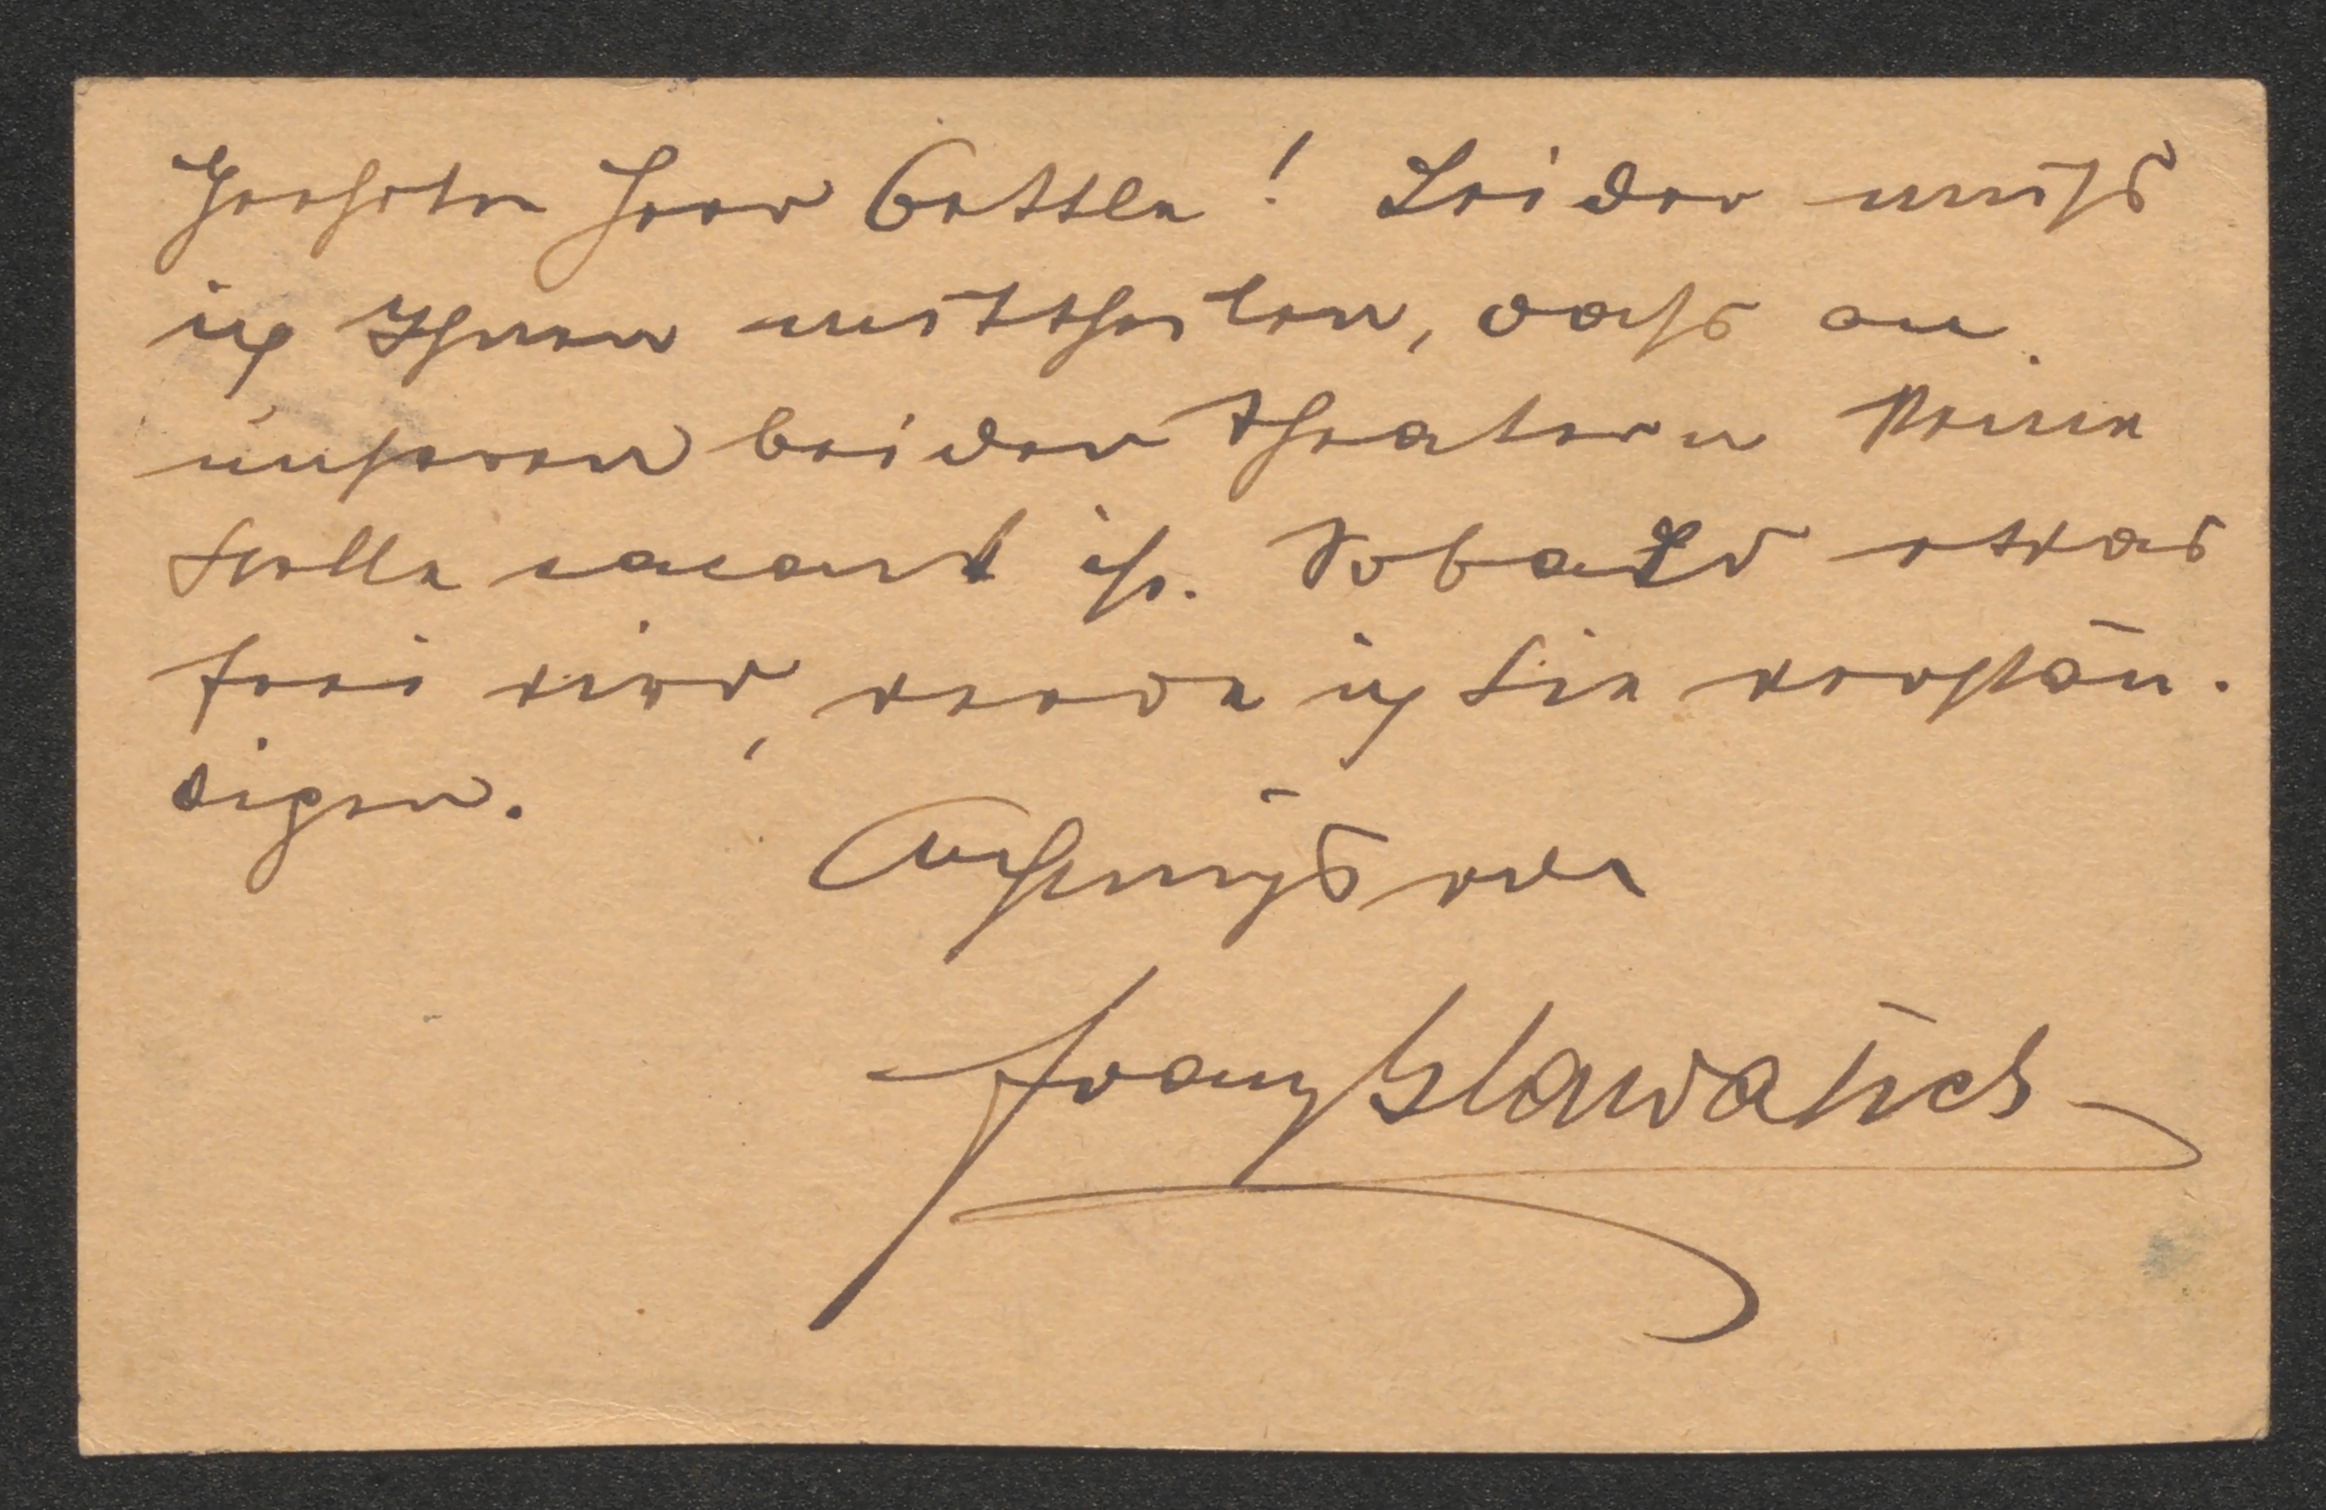 Geehrter Herr Gettke! Leider muß
ich Ihnen mittheilen, daß an
unseren beiden Theatern keine
Stelle vacant ist. Sobald etwas
frei wird, werde ich Sie verstän-
digen.
Achtungsvoll
Franz Glawatsch